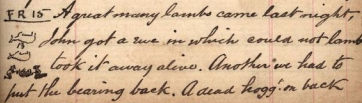 FR 15 A great many lambs came last night
John got a ewe in which could not lamb
took it away alive. Another we had to
put the bearing back. A dead hogg on back